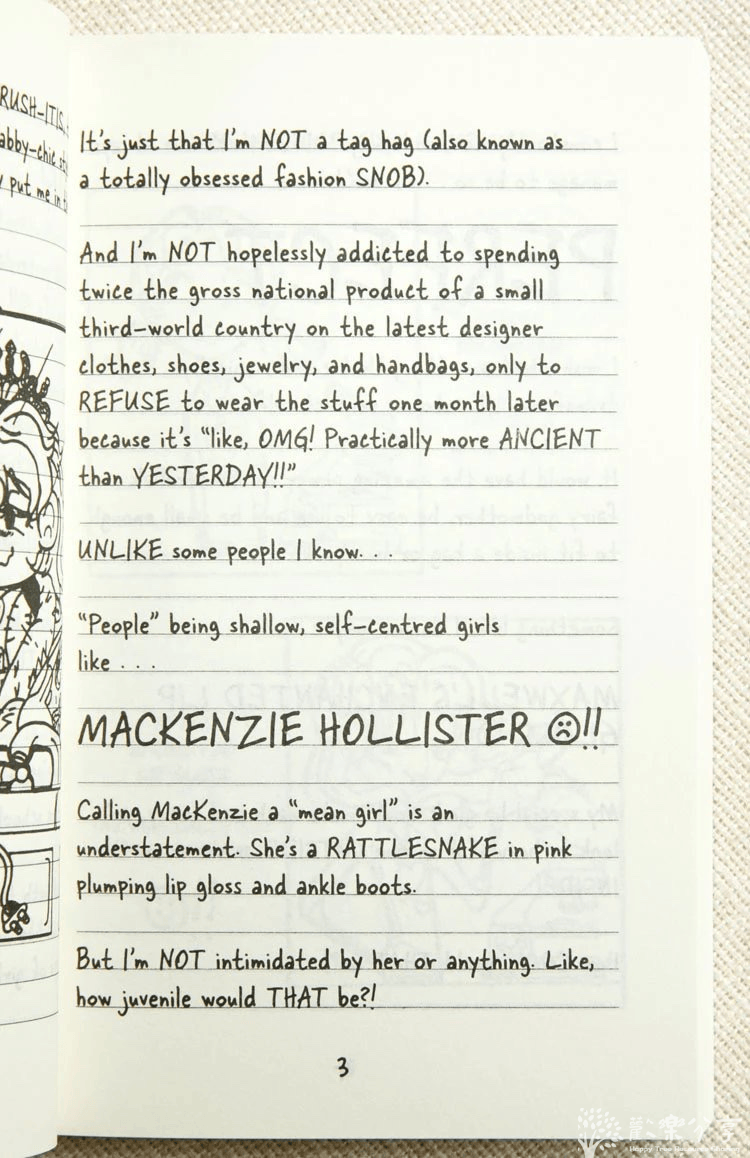 RUSH-ITIS
abby-chic
put me in
It's just that I'm NOT a tag hag (also known as
a totally obsessed fashion SNOB).
And I'm NOT hopelessly addicted to spending
twice the gross national product of a small
third-world country on the latest designer
clothes, shoes, jewelry, and handbags, only to
REFUSE to wear the stuff one month later
because it's "like, OMG! Practically more ANCIENT
than YESTERDAY!!"
UNLIKE some people I know. . .
"People" being shallow, self-centred girls
like . . .
MACKENZIE HOLLISTER ☹!!
Calling MacKenzie a "mean girl" is an
understatement. She's a RATTLESNAKE in pink
plumping lip gloss and ankle boots.
But I'm NOT intimidated by her or anything. Like,
how juvenile would THAT be?!
3